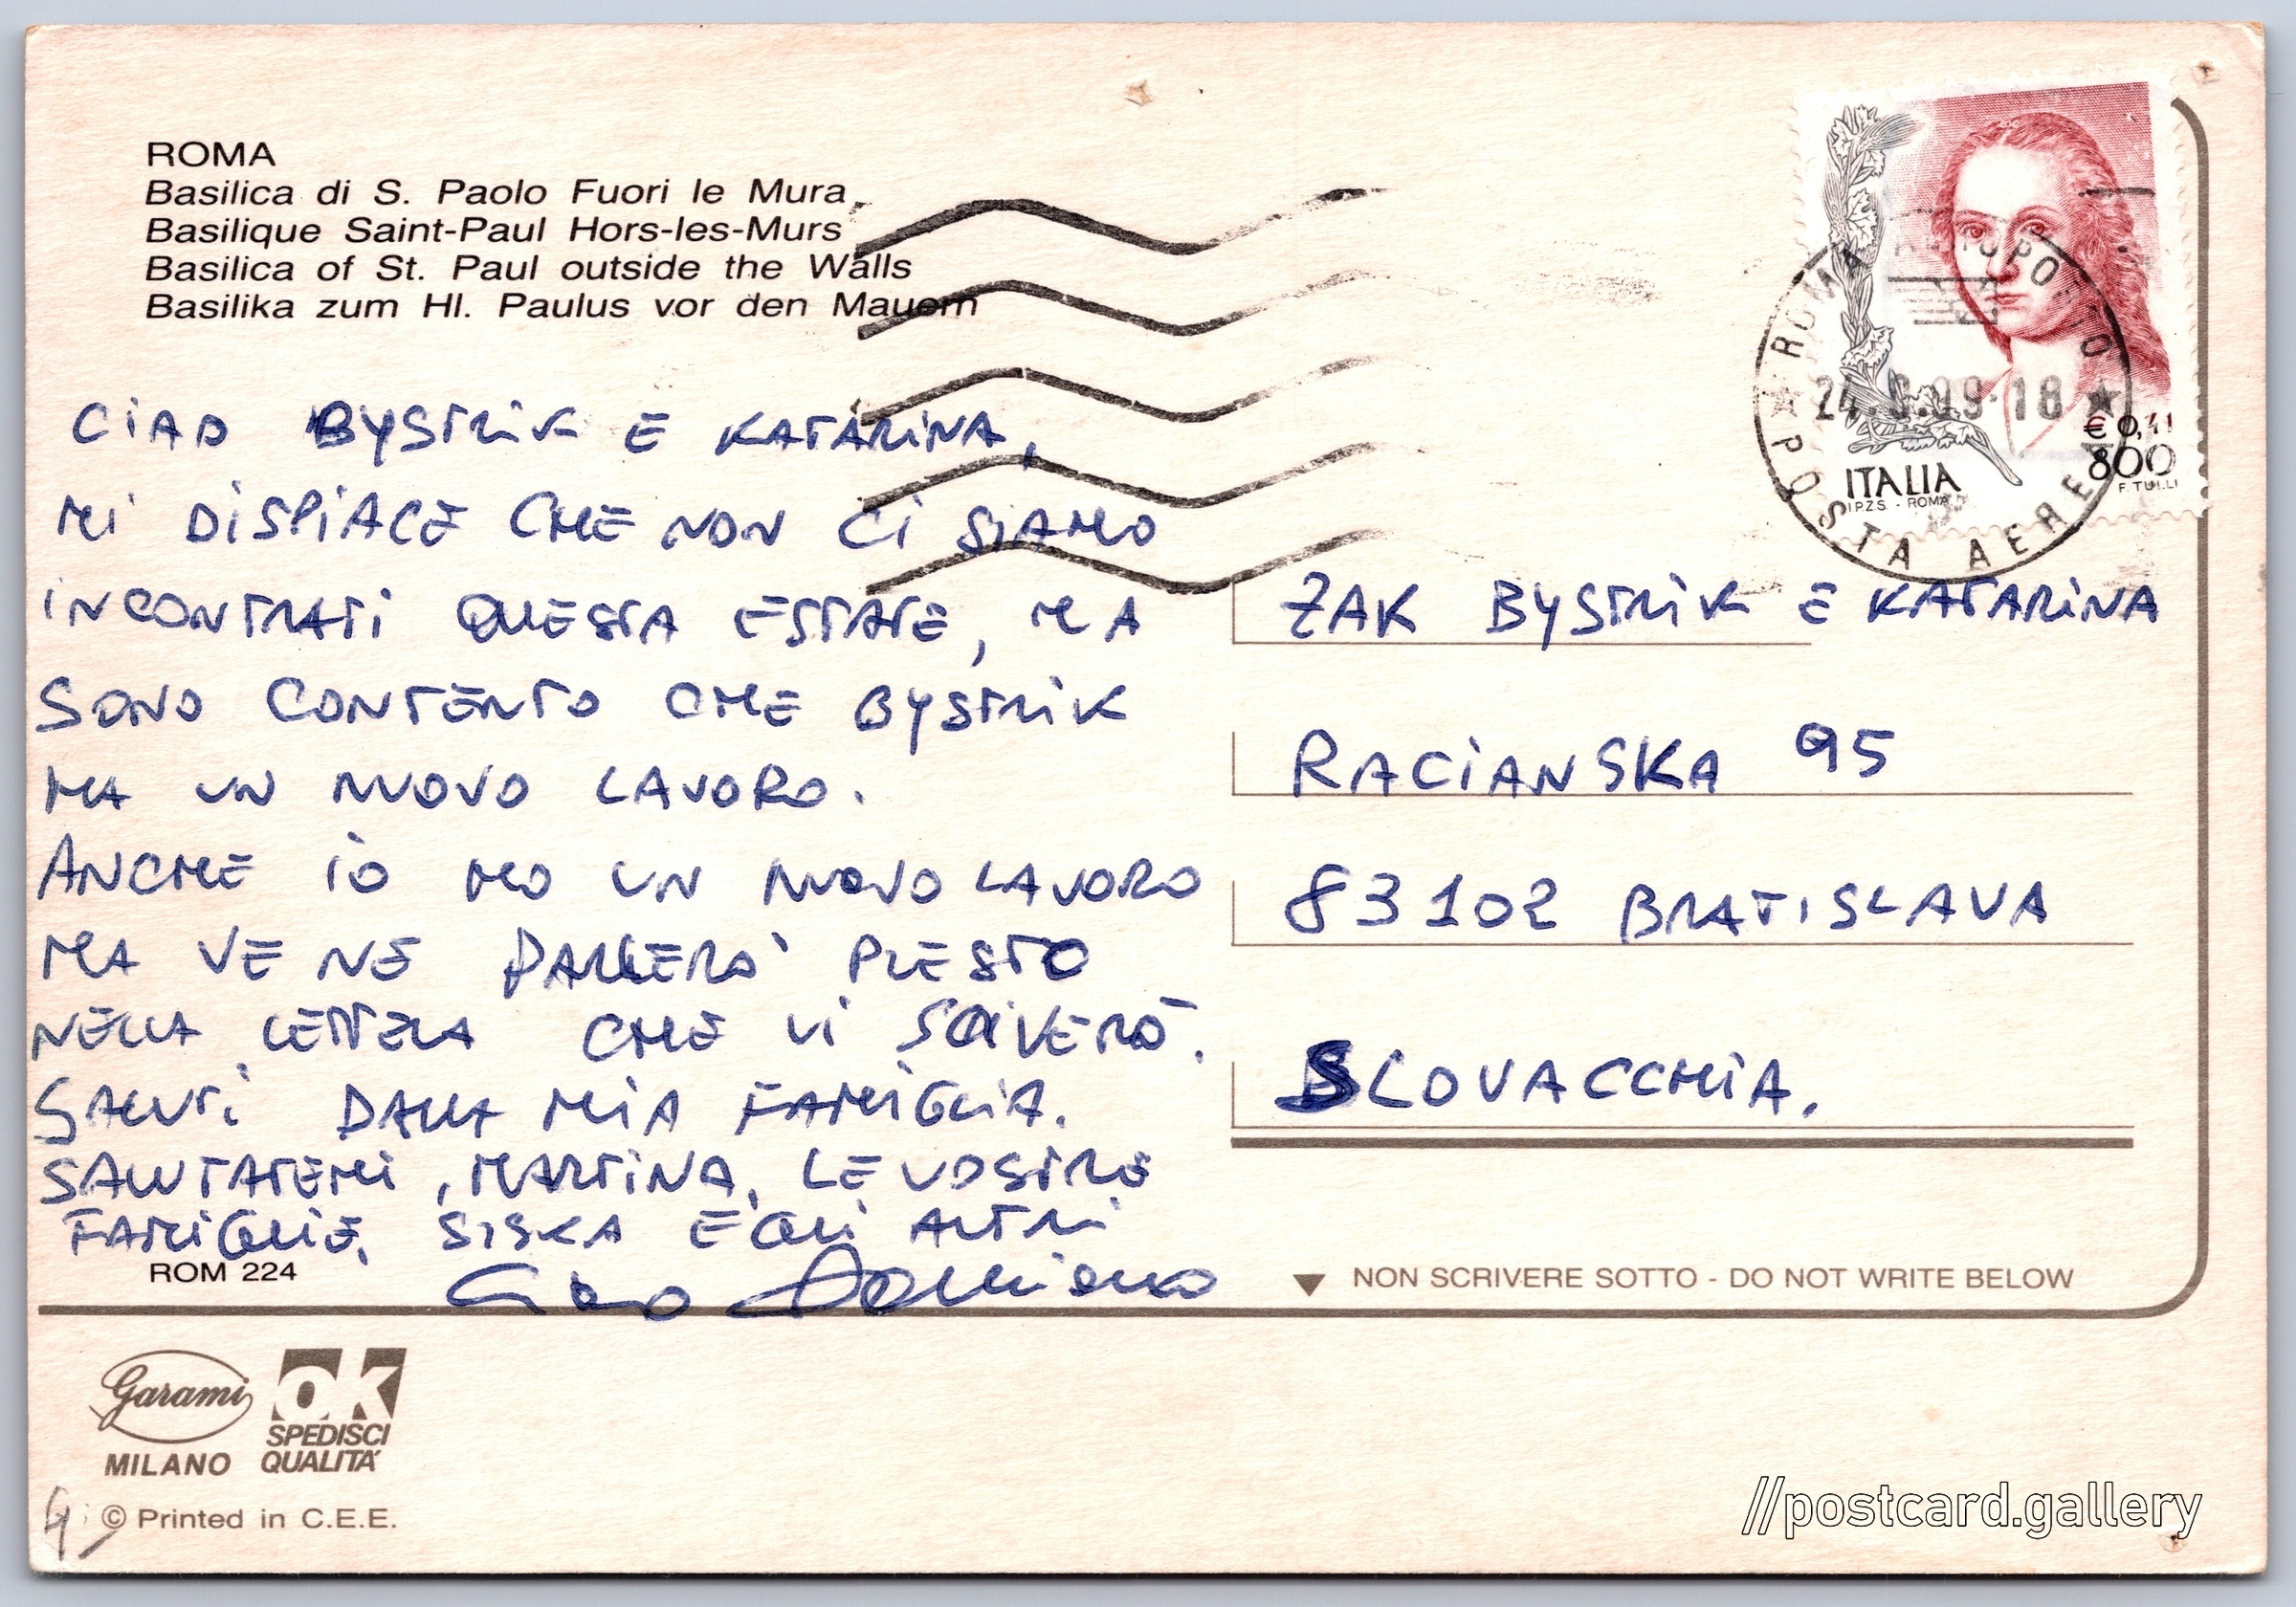 ROMA
Basilica di S. Paolo Fuori le Mura
Basilique Saint-Paul Hors-les-Murs
Basilica of St. Paul outside the Walls
Basilika zum Hl. Paulus vor den Mauern
CIAO BYSTRIK E KATARINA,
MI DISPIACE CHE NON CI SIAMO
INCONTRATI QUESTA ESTATE, MA
SONO CONTENTO CHE BYSTRIK
HA UN NUOVO LAVORO.
ANCHE IO HO UN NUOVO LAVORO
MA VE NE PARLERO' PRESTO
NELLA LETTERA CHE VI SCRIVERÒ.
SALUTI DALLA MIA FAMIGLIA.
SALUTATEMI, MARTINA, LE VOSTRE
FAMIGLIE, SISKA E GLI ALTRI
Ciao
ROM 224
ROMA AEROPORTO
POSTA AEREA
ITALIA
I.P.Z.S. - ROMA
€ 0,41
800
ZAK BYSTRIK E KATARINA
RACIANSKA 95
83102 BRATISLAVA
SLOVACCHIA.
NON SCRIVERE SOTTO - DO NOT WRITE BELOW
Garami
MILANO
OK
SPEDISCI
QUALITA'
© Printed in C.E.E.
//postcard.gallery